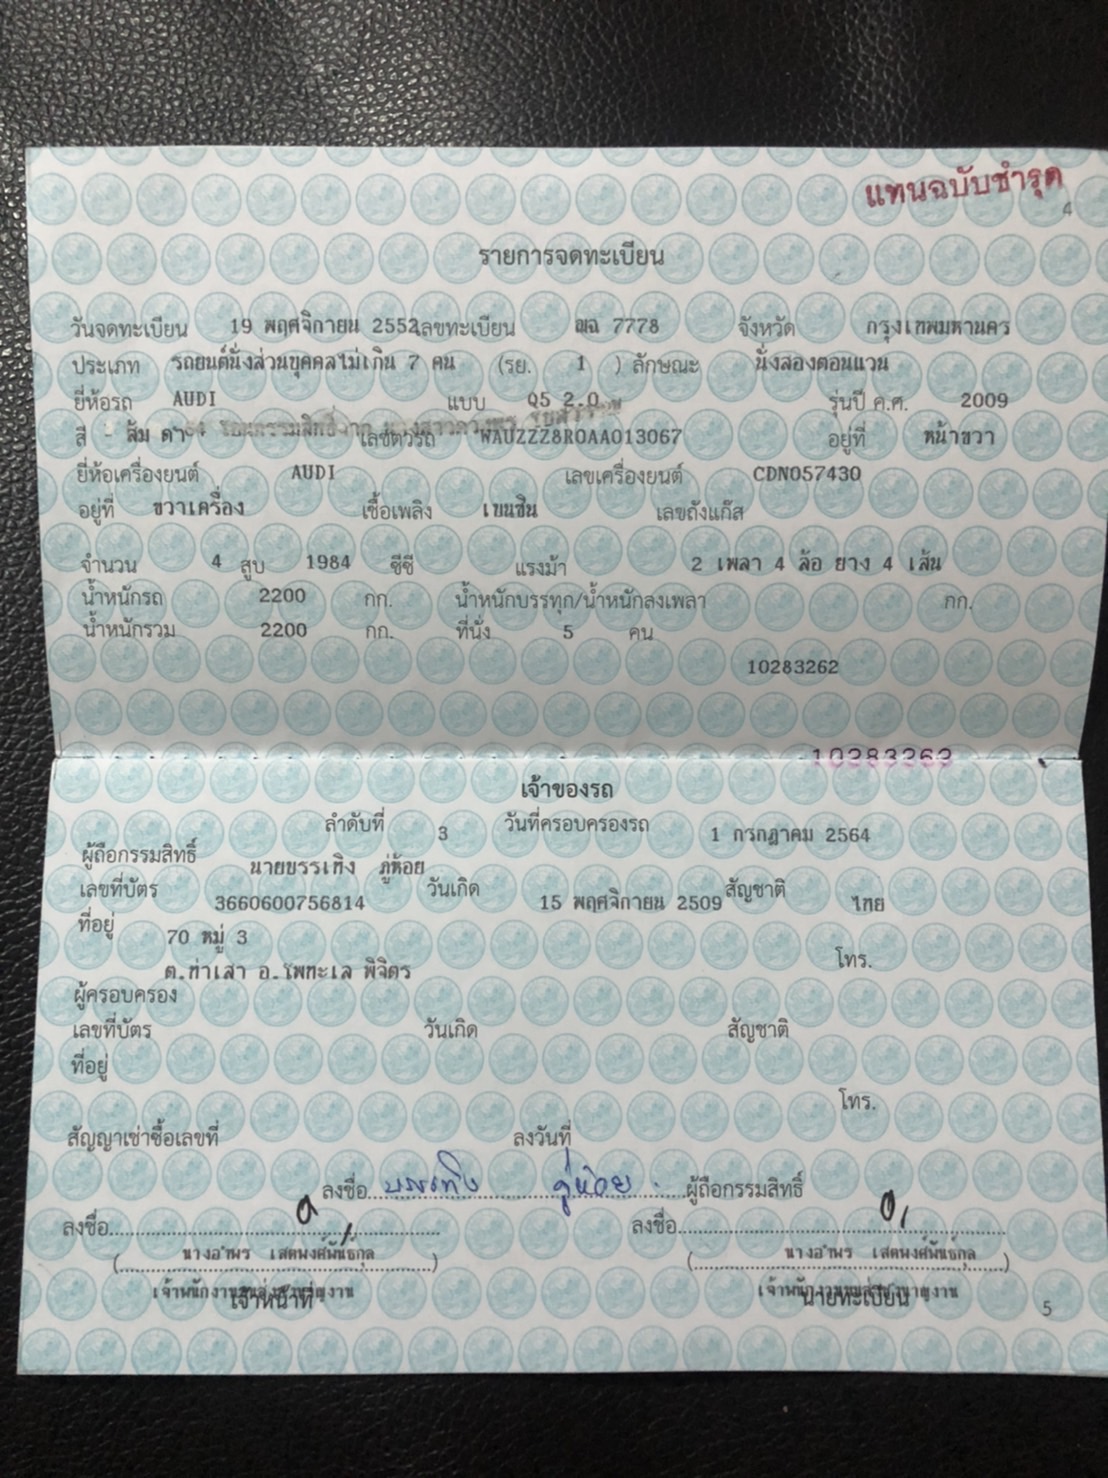 แทนฉบับชำรุด
4
รายการจดทะเบียน
วันจดทะเบียน 19 พฤศจิกายน 2552 เลขทะเบียน ฌฉ 7778 จังหวัด กรุงเทพมหานคร
ประเภท รถยนต์นั่งส่วนบุคคลไม่เกิน 7 คน (รย. 1 ) ลักษณะ นั่งสองตอนแวน
ยี่ห้อรถ AUDI แบบ Q5 2.0 รุ่นปี ค.ศ. 2009
สี - ส้ม ดำ เลขตัวรถ WAUZZZ8R0AA013067 อยู่ที่ หน้าขวา
ยี่ห้อเครื่องยนต์ AUDI เลขเครื่องยนต์ CDN057430
อยู่ที่ ขวาเครื่อง เชื้อเพลิง เบนซิน เลขถังแก๊ส
จำนวน 4 สูบ 1984 ซีซี แรงม้า 2 เพลา 4 ล้อ ยาง 4 เส้น
น้ำหนักรถ 2200 กก. น้ำหนักบรรทุก/น้ำหนักลงเพลา กก.
น้ำหนักรวม 2200 กก. ที่นั่ง 5 คน
10283262
10283262
เจ้าของรถ
ลำดับที่ 3 วันที่ครอบครองรถ 1 กรกฎาคม 2564
ผู้ถือกรรมสิทธิ์ นายบรรเทิง ภู่ห้อย
เลขที่บัตร 3660600756814 วันเกิด 15 พฤศจิกายน 2509 สัญชาติ ไทย
ที่อยู่ 70 หมู่ 3
ต.ท่าเสา อ.โพทะเล พิจิตร โทร.
ผู้ครอบครอง
เลขที่บัตร วันเกิด สัญชาติ
ที่อยู่
โทร.
สัญญาเช่าซื้อเลขที่ ลงวันที่
ลงชื่อ บรรเทิง ภู่ห้อย ผู้ถือกรรมสิทธิ์
ลงชื่อ ลงชื่อ
(นางอำพร เสตพงศ์พันธ์กุล) (นางอำพร เสตพงศ์พันธ์กุล)
เจ้าพนักงานขนส่งชำนาญงาน เจ้าพนักงานขนส่งชำนาญงาน
เจ้าหน้าที่ นายทะเบียน
5